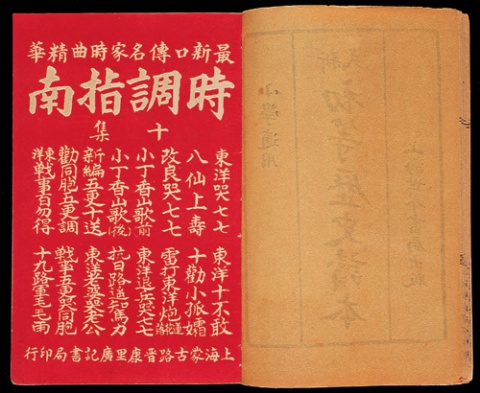 最新口傳名家時曲精華
時調指南
十集
東洋哭七七
八仙上壽
改良哭七七
小丁香山歌(前)
小丁香山歌(後)
新編五更十送
勸同胞五更調
東洋戰事百勿得
東洋十不敢
十勸小孤孀
雷打東洋炮蓮花落
東洋退兵哭七七
抗日路遙知馬力
東洋老婆哭老公
戰事五更哭同胞
十九路軍毛毛雨
上海蒙古路晉康里廣記書局印行
初等歷史讀本
小學適用